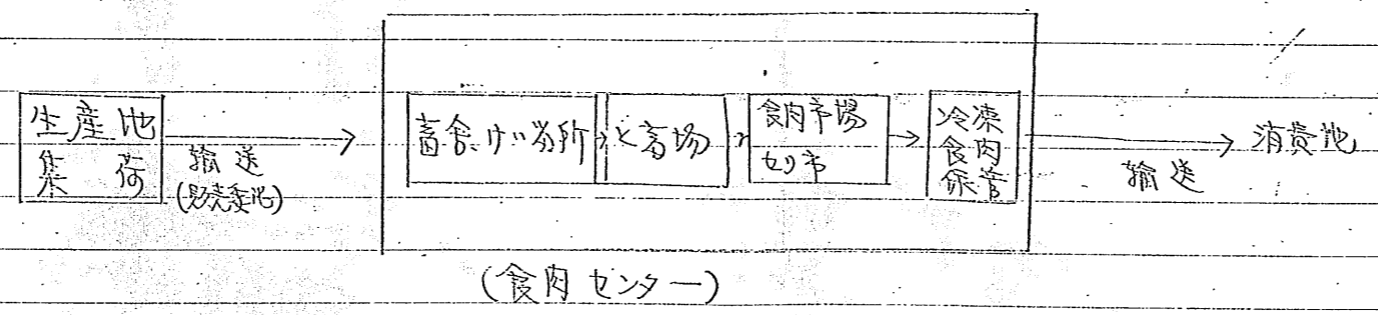 生産地
集荷
輸送
(販売委託)
畜舎、けい留所
と畜場
食肉市場
せり市
冷凍
食肉
保管
輸送
消費地
(食肉センター)